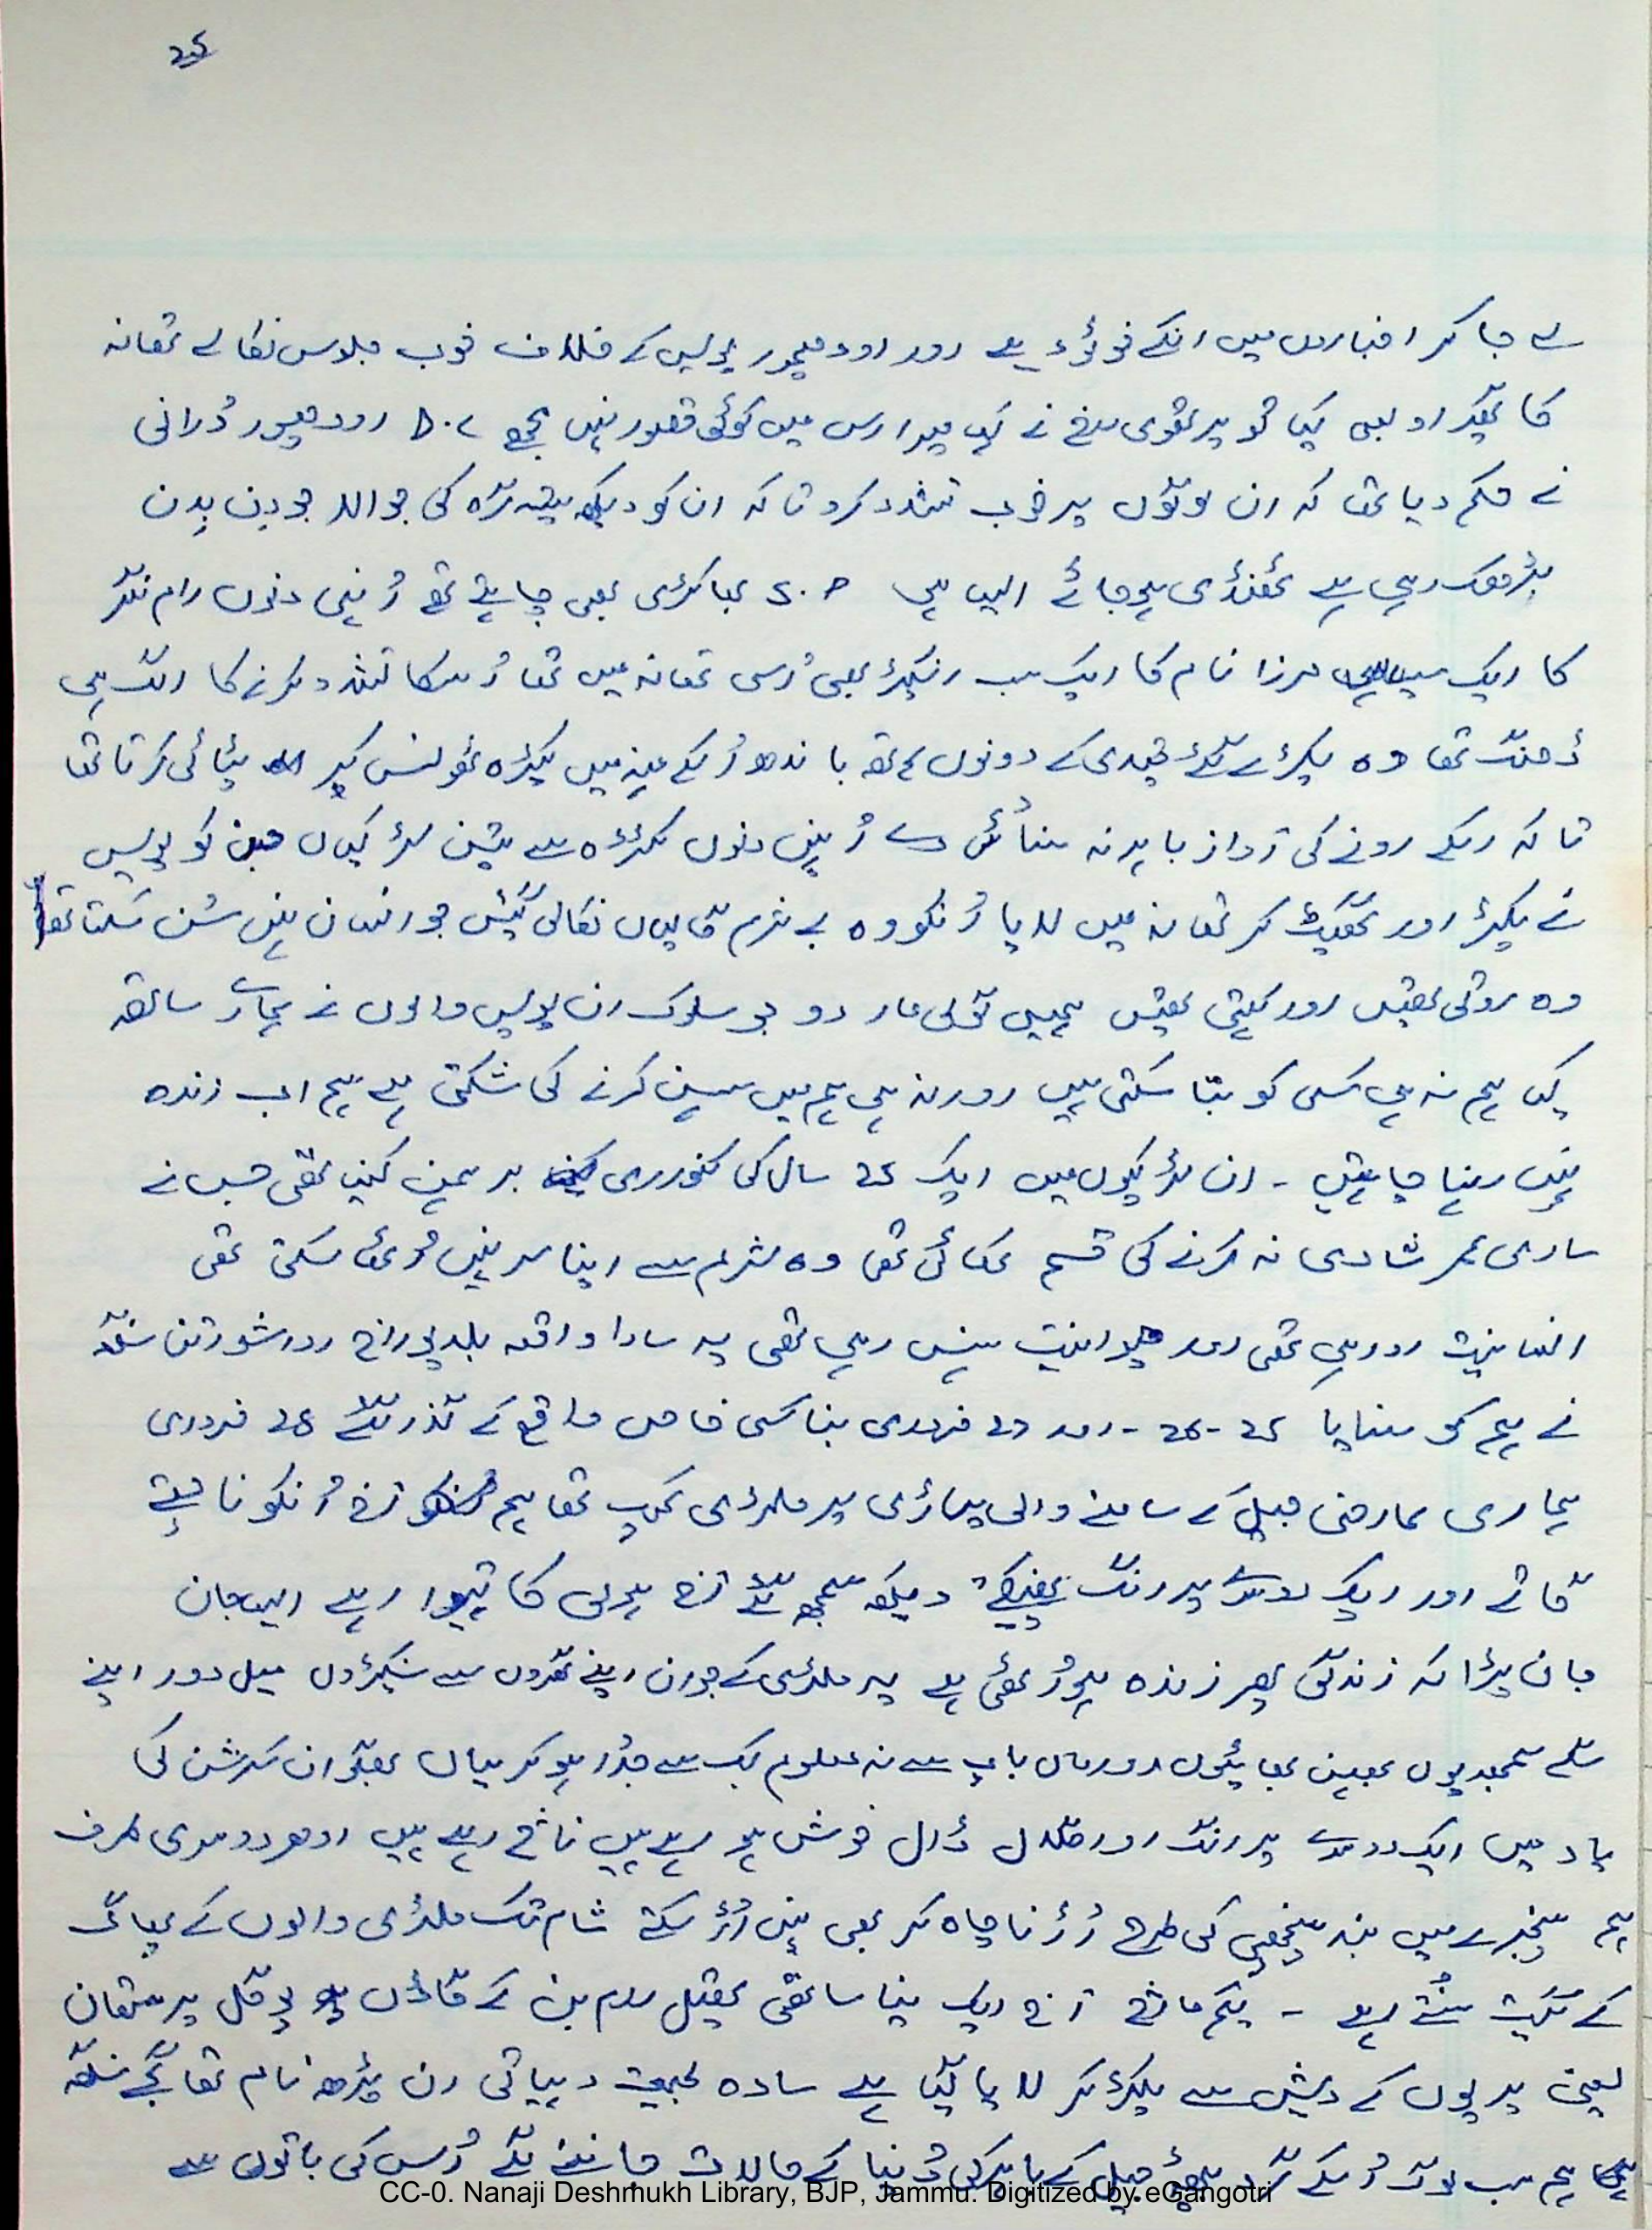 25
لے جا کر اخباروں میں انکے فوٹو دیے اور اودھمپور پولیس کے خلاف خوب جلوس نکالے تھانہ
کا گھیراو بھی کیا تو پرتھوی سنگھ نے کہا میرا اس میں کوئی قصور نہیں مجھے D.C اودھمپور دُرانی
نے حکم دیا تھا کہ ان لوگوں پر خوب تشدد کرو تا کہ ان کو دیکھ ستیہ گرہ کی جوالا جو دن بدن
بھڑک رہی ہے ٹھنڈی ہو جائے ایسا ہی S.P بھی چاہتے تھے اُنہی دنوں رام نگر
کا ایک مرزا نام کا ایک سب انسپکٹر بھی اُسی تھانہ میں تھا اُسکا تشدد کرنے کا الگ ہی
ڈھنگ تھا وہ پکڑے گئے قیدی کے دونوں ہاتھ باندھ اُسکے منہ میں کپڑہ ٹھونس کر پٹائی کرتا تھا
تا کہ اسکے رونے کی آواز باہر نہ سنائی دے اُنہیں دنوں سے تین لڑکیاں جن کو پولیس
نے پکڑ اور گھسیٹ کر تھانہ میں لایا اُنکو وہ بے شرم گالیاں نکالی گئیں جو انسان نہیں سُن سکتا تھا
وہ روتی تھیں اور کہتی تھیں ہمیں گولی مار دو جو سلوک ان پولیس والوں نے ہمارے ساتھ
کیا ہم نہ ہی کسی کو بتا سکتی ہیں اور نہ ہی ہم میں سہن کرنے کی شکتی ہے ہم اب زندہ
نہیں رہنا چاہتیں - ان لڑکیوں میں ایک 25 سال کی کنواری برہمن کنیا تھی جس نے
ساری عمر شادی نہ کرنے کی قسم کھائی تھی وہ شرم سے اپنا سر نہیں اُٹھا سکتی تھی
انسانیت رو رہی تھی اور حیوانیت ہنس رہی تھی یہ سارا واقعہ بلدیو راج اور شورتن سنگھ
نے ہم کو سنایا 25 - 26 - اور 27 فروری بنا کسی خاص واقع کے گذر گئے 28 فروری
ہماری عارضی جیل کے سامنے والی پہاڑی پر ملٹری کیمپ تھا ہم آج اُنکو ناچتے
گاتے اور ایک دوسرے پر رنگ پھینکتے دیکھ سمجھ گئے آج ہولی کا تیوہار ہے ایسا جان
جان پڑا کہ زندگی پھر زندہ ہو اُٹھی ہے یہ ملٹری کے جوان اپنے گھروں سے سینکڑوں میل دور اپنے
سگے سمبندیوں بہن بھائیوں اور ماں باپ سے نہ معلوم کب سے جُدا ہو کر یہاں بھگوان کرشن کی
یاد میں ایک دوسرے پر رنگ اور گلال ڈال خوش ہو رہے ہیں ناچ رہے ہیں ادھر دوسری طرف
ہم پنجرے میں بند پنچھی کی طرح اُڑنا چاہ کر بھی نہیں اُڑ سکتے شام تک ملٹری والوں کے
کے گیت سُنتے رہے - یکم مارچ آج ایک نیا ساتھی رام بن کے گاؤں پرستھان
یعنی پریوں کے دیش سے پکڑ کر لایا گیا ہے سادہ طبیعت دیہاتی ان پڑھ نام تھا سنگھ
ہم سب لوگ اُسکے گرد جیل کے باہر کی دُنیا کے حالات جاننے لگے اُس کی باتوں سے
CC-0. Nanaji Deshmukh Library, BJP, Jammu. Digitized by eGangotri